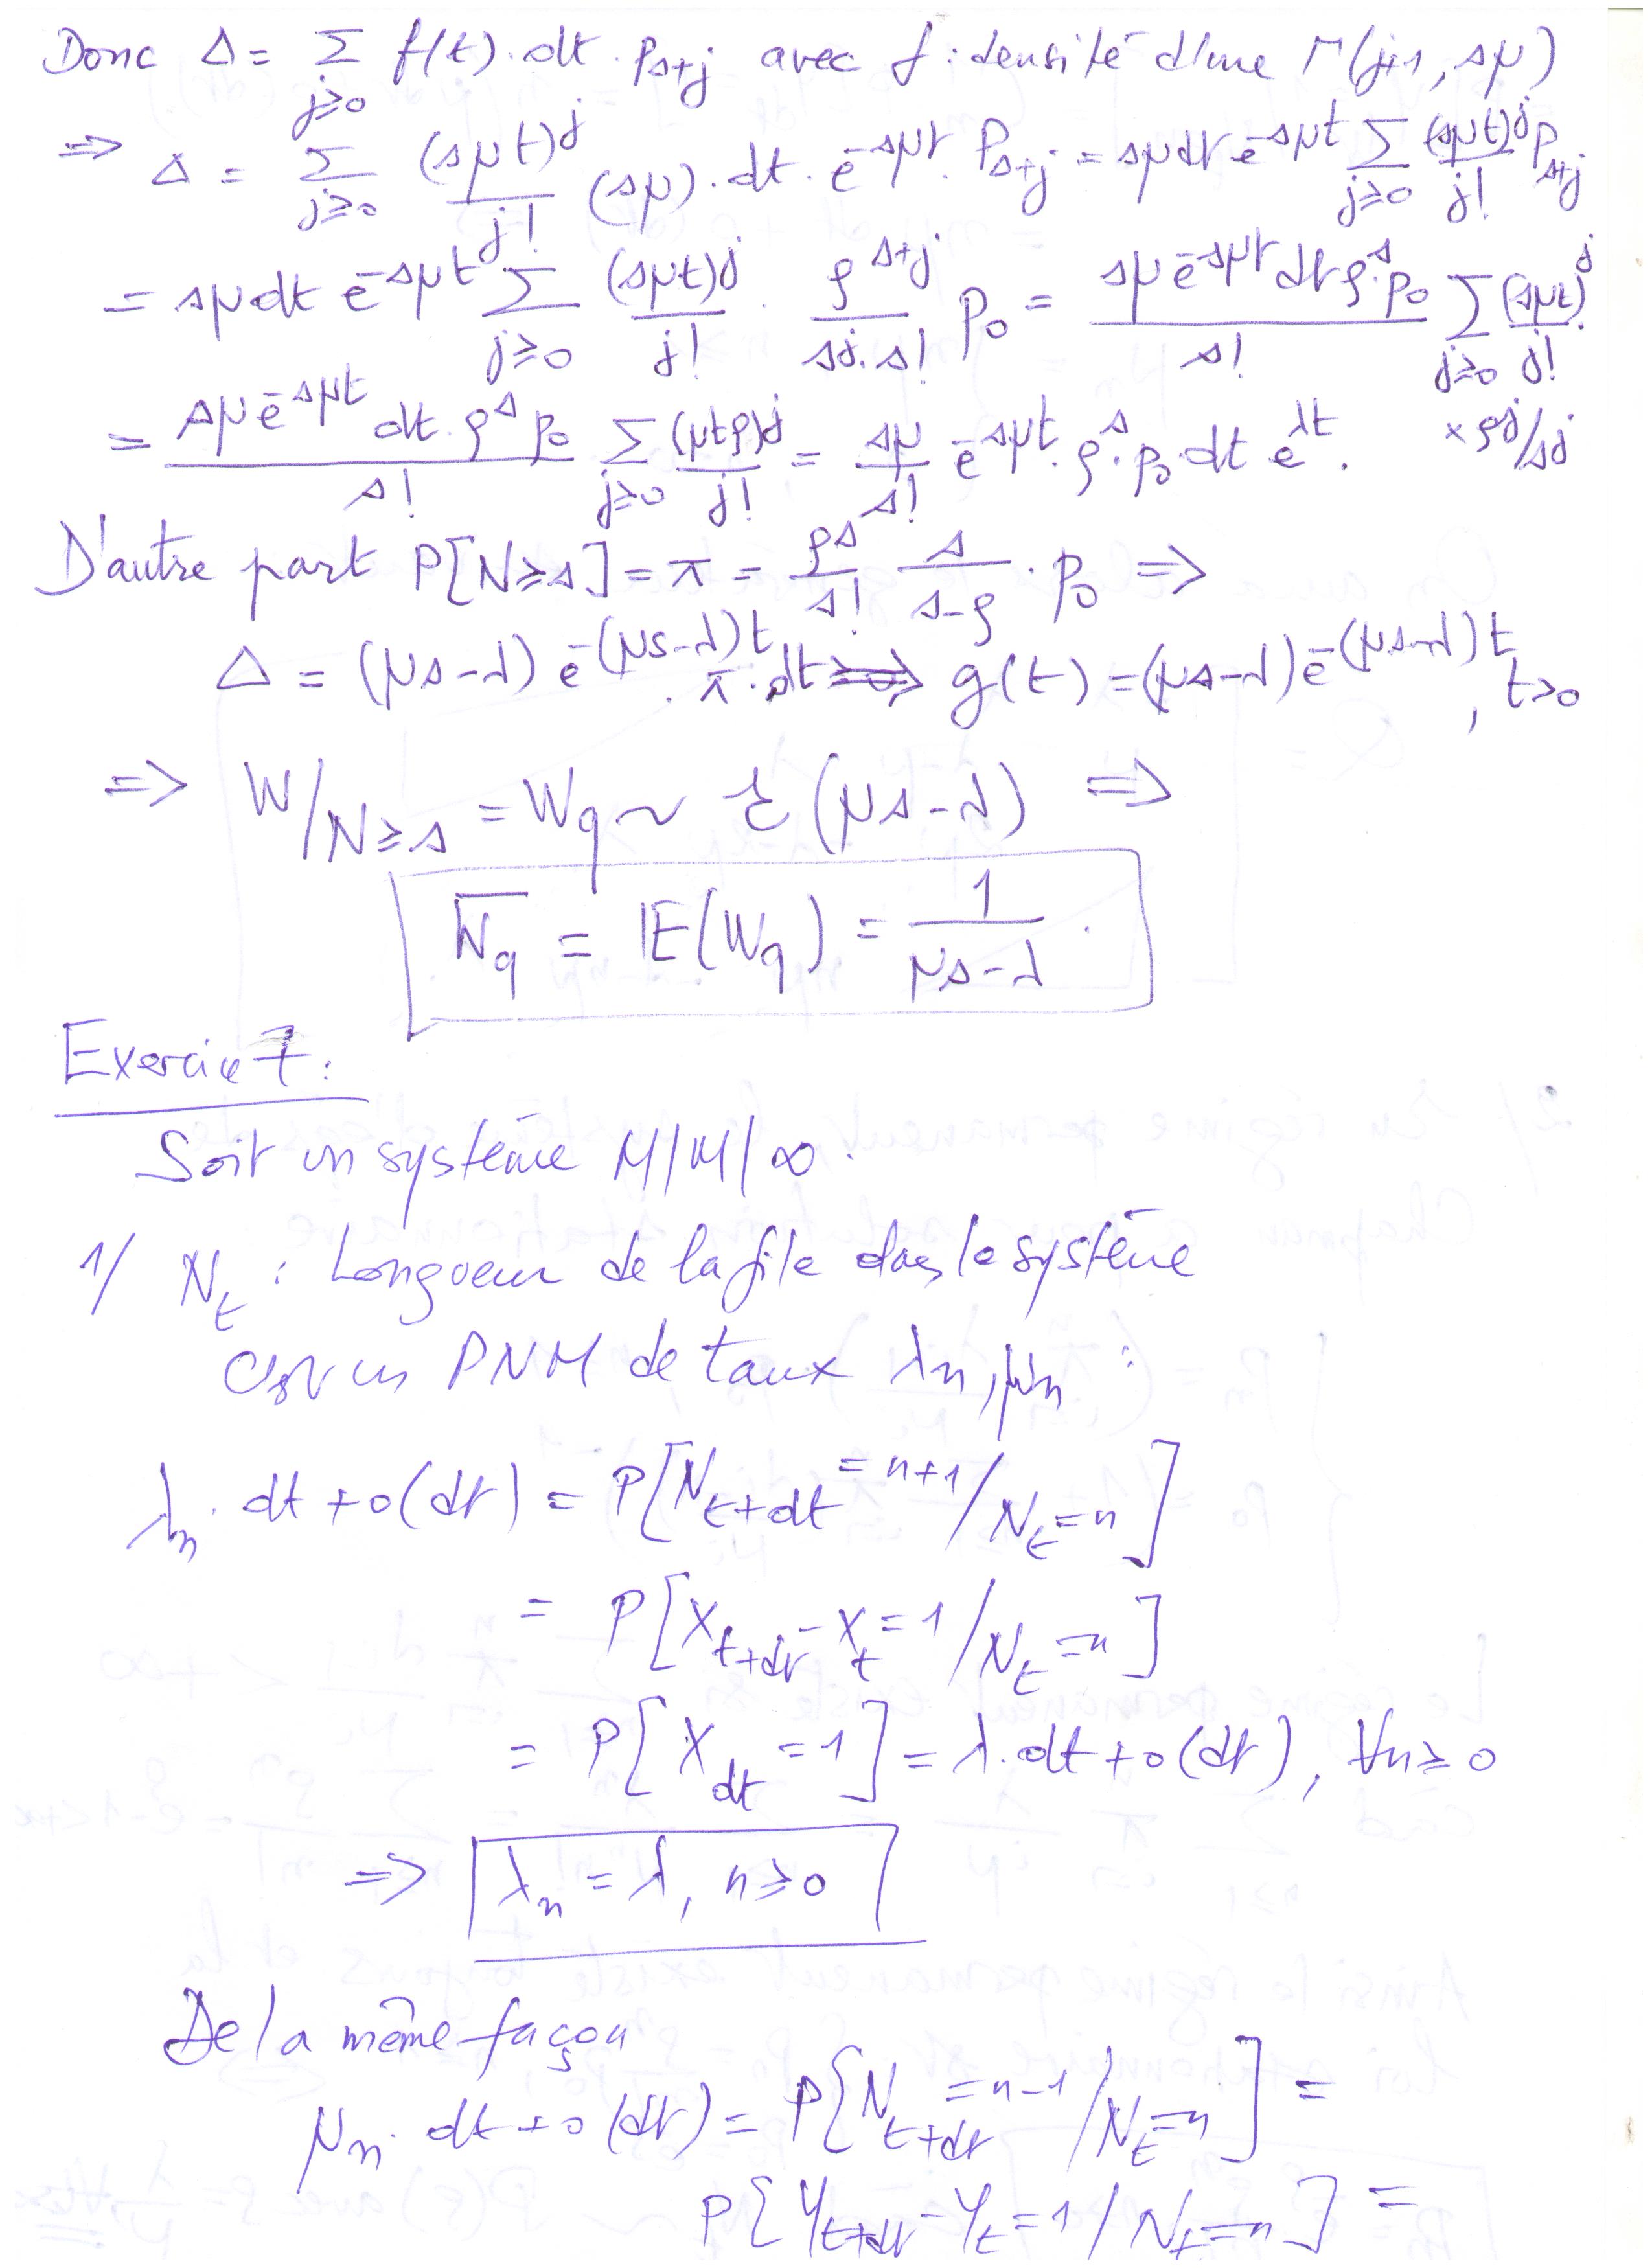 Donc Δ = Σ_{j≥0} f(t).dt. p_{s+j} avec f : densité d'une Γ(j+1, sμ)
⇒ Δ = Σ_{j≥0} (sμt)^j / j! (sμ).dt. e^{-sμt}. P_{s+j} = sμdt e^{-sμt} Σ_{j≥0} (sμt)^j / j! P_{s+j}
= sμdt e^{-sμt} Σ_{j≥0} (sμt)^j / j! . ρ^{s+j} / (s^j. s!) p_0 = sμ e^{-sμt} dt ρ^s. p_0 / s! Σ_{j≥0} (sμt)^j / j!
× ρ^j / s^j
= sμ e^{-sμt} dt. ρ^s p_0 / s! Σ_{j≥0} (μtρ)^j / j! = sμ / s! e^{-sμt}. ρ^s. p_0. dt e^{λt}.
D'autre part P[N≥s] = π = ρ^s / s! s / (s-ρ) . p_0 ⇒
Δ = (μs-λ) e^{-(μs-λ)t}. π. dt ⇒ g(t) = (μs-λ) e^{-(μs-λ)t}, t>0
⇒ W/N≥s = W_q ~ ℰ(μs-λ) ⇒
W̄_q = 𝔼(W_q) = 1 / (μs-λ) .
Exercice 7 :
Soit un système M/M/∞.
1/ N_t : Longueur de la file dans le système
est un PNM de taux λ_n, μ_n :
λ_n. dt + o(dt) = P[N_{t+dt} = n+1 / N_t = n]
= P[X_{t+dt} - X_t = 1 / N_t = n]
= P[X_{dt} = 1] = λ.dt + o(dt), ∀n ≥ 0
⇒ λ_n = λ, n ≥ 0
De la même façon
μ_n. dt + o(dt) = P[N_{t+dt} = n-1 / N_t = n] =
P[Y_{t+dt} - Y_t = 1 / N_t = n] =